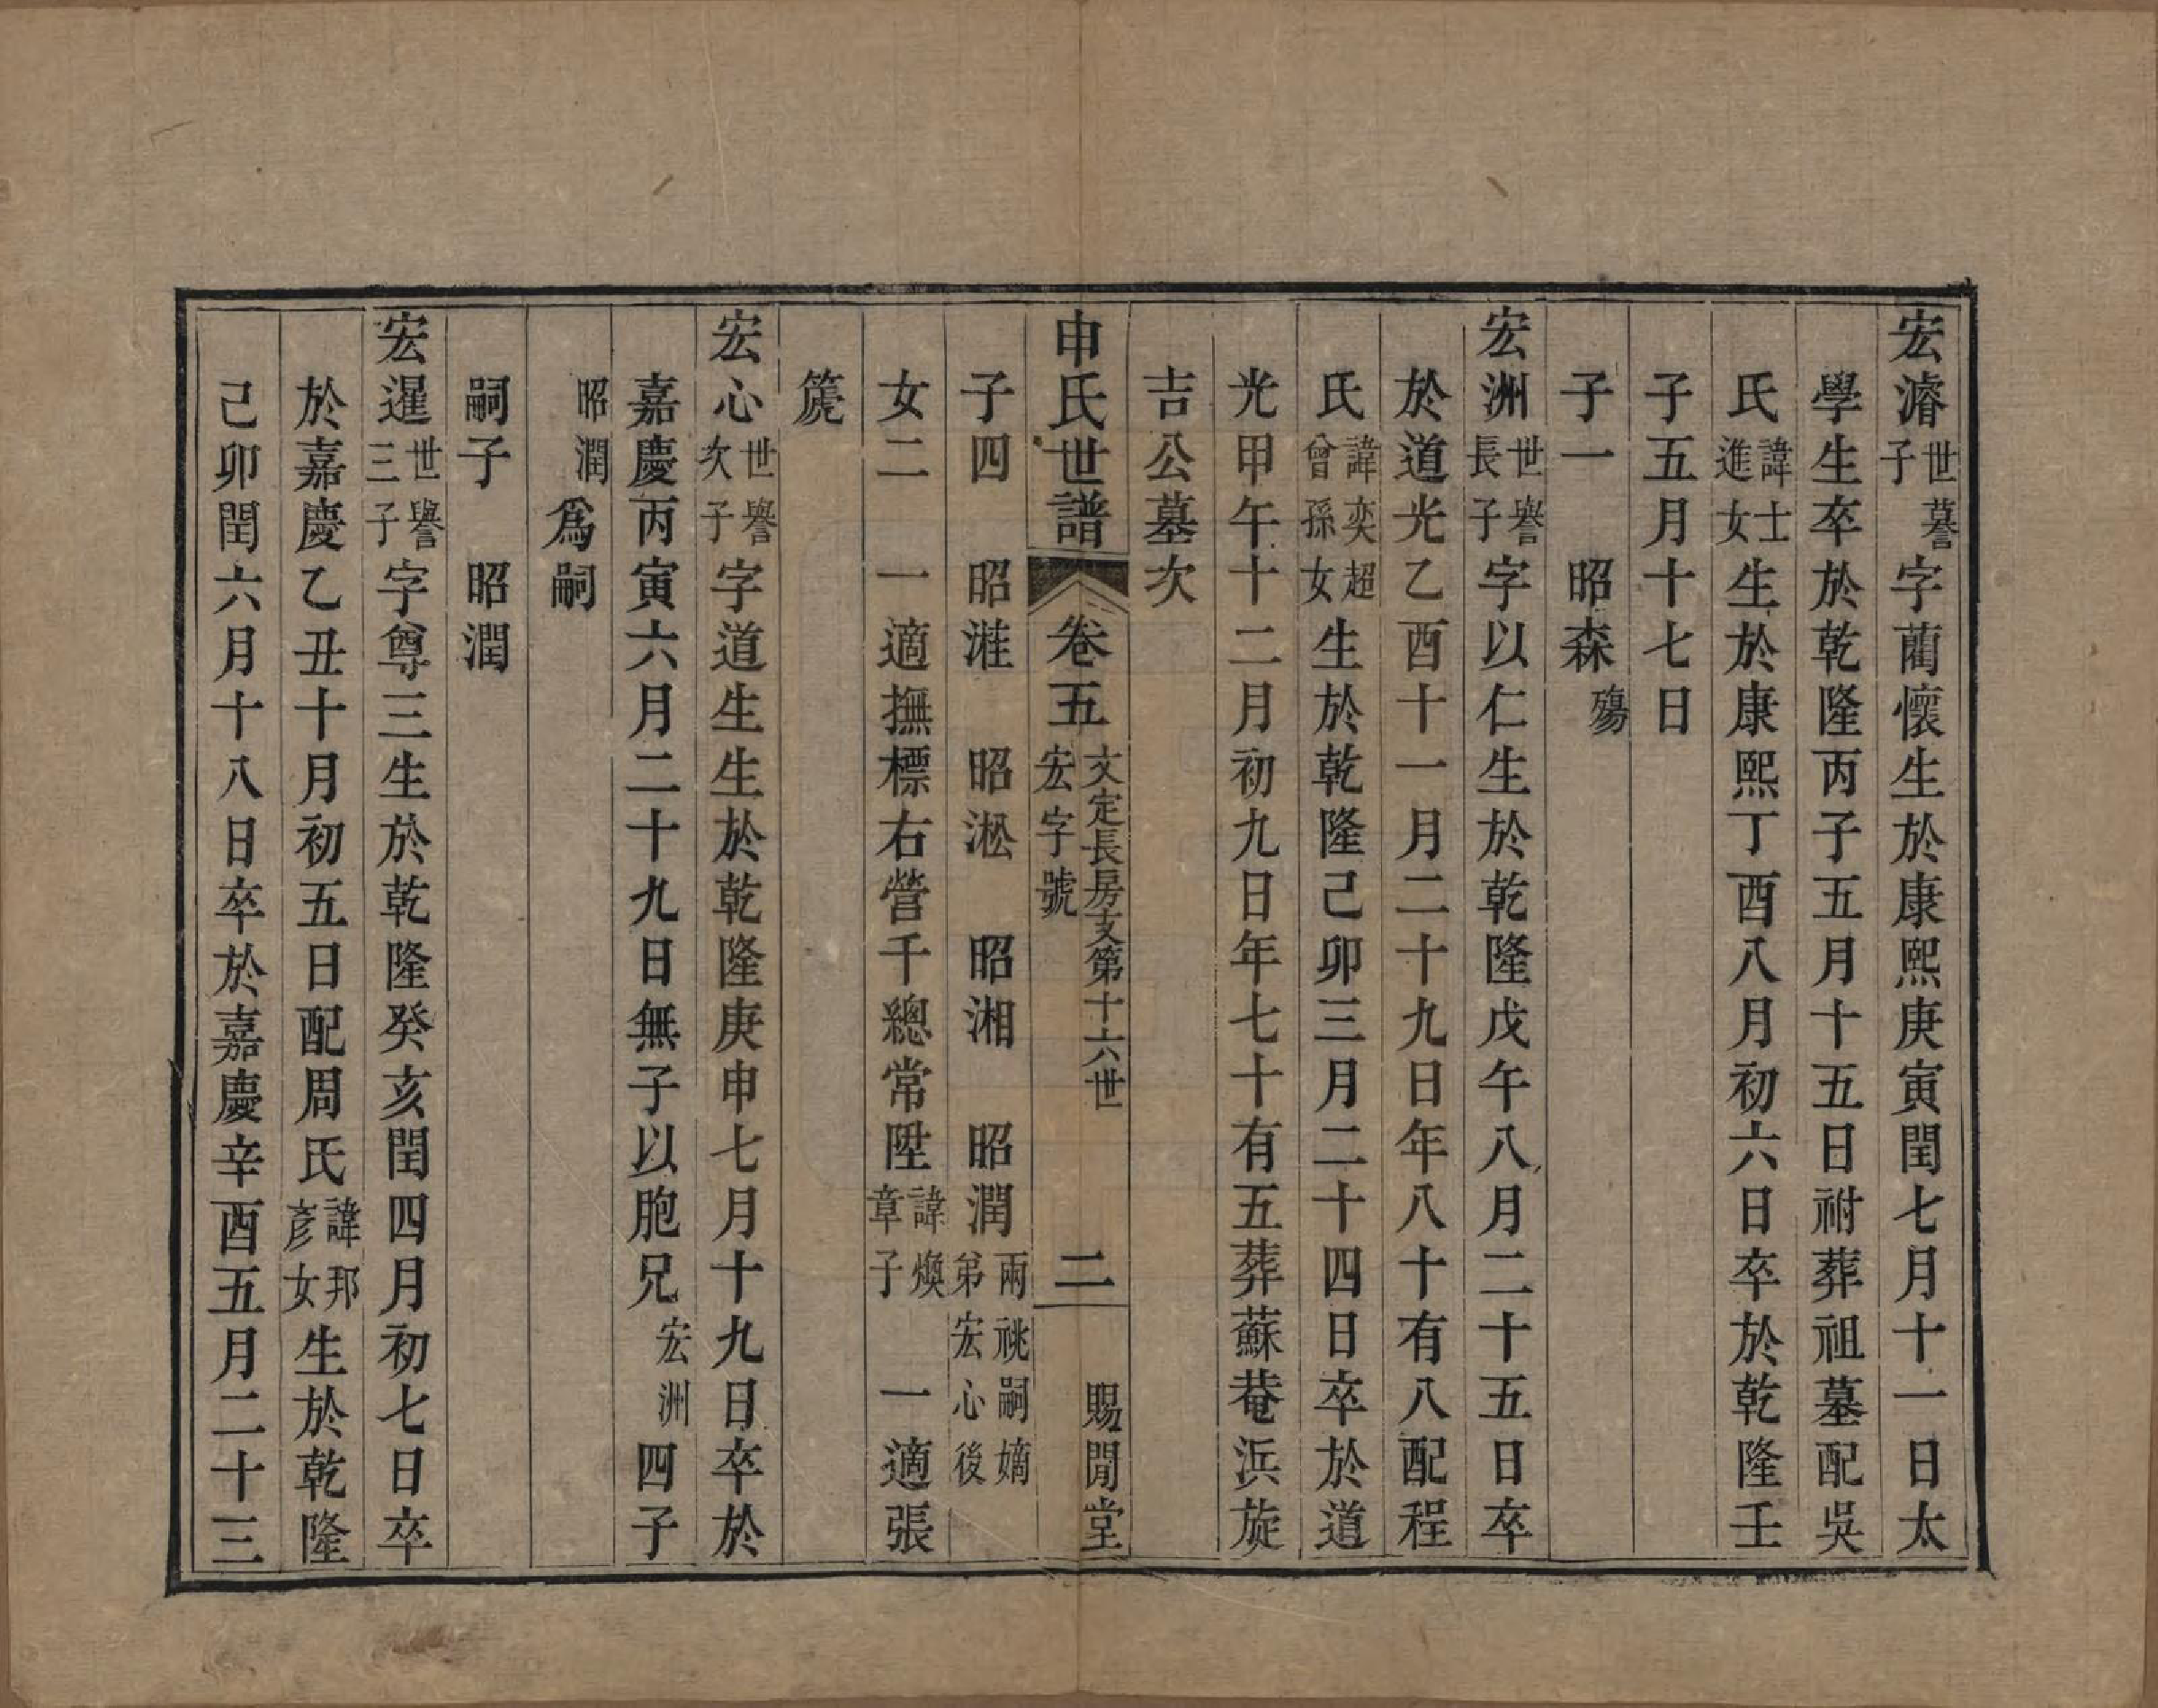 宏濬世謩子字藺懷生於康熙庚寅閏七月十一日太
學生卒於乾隆丙子五月十五日祔葬祖墓配吳
氏諱士進女生於康熙丁酉八月初六日卒於乾隆壬
子五月十七日
子一　昭森殤
宏洲世譽長子字以仁生於乾隆戊午八月二十五日卒
於道光乙酉十一月二十九日年八十有八配程
氏諱奕超曾孫女生於乾隆己卯三月二十四日卒於道
光甲午十二月初九日年七十有五葬蘇菴浜旋
吉公墓次
申氏世譜　卷五　文定長房支第十六世宏字號　二　賜閒堂
子四　昭溎　昭淞　昭湘　昭潤兩祧嗣嫡弟宏心後
女二　一適撫標右營千總常陞諱煥章子　一適張
箎
宏心世譽次子字道生生於乾隆庚申七月十九日卒於
嘉慶丙寅六月二十九日無子以胞兄宏洲四子
昭潤爲嗣
嗣子　昭潤
宏暹世譽三子字尊三生於乾隆癸亥閏四月初七日卒
於嘉慶乙丑十月初五日配周氏諱邦彥女生於乾隆
己卯閏六月十八日卒於嘉慶辛酉五月二十三